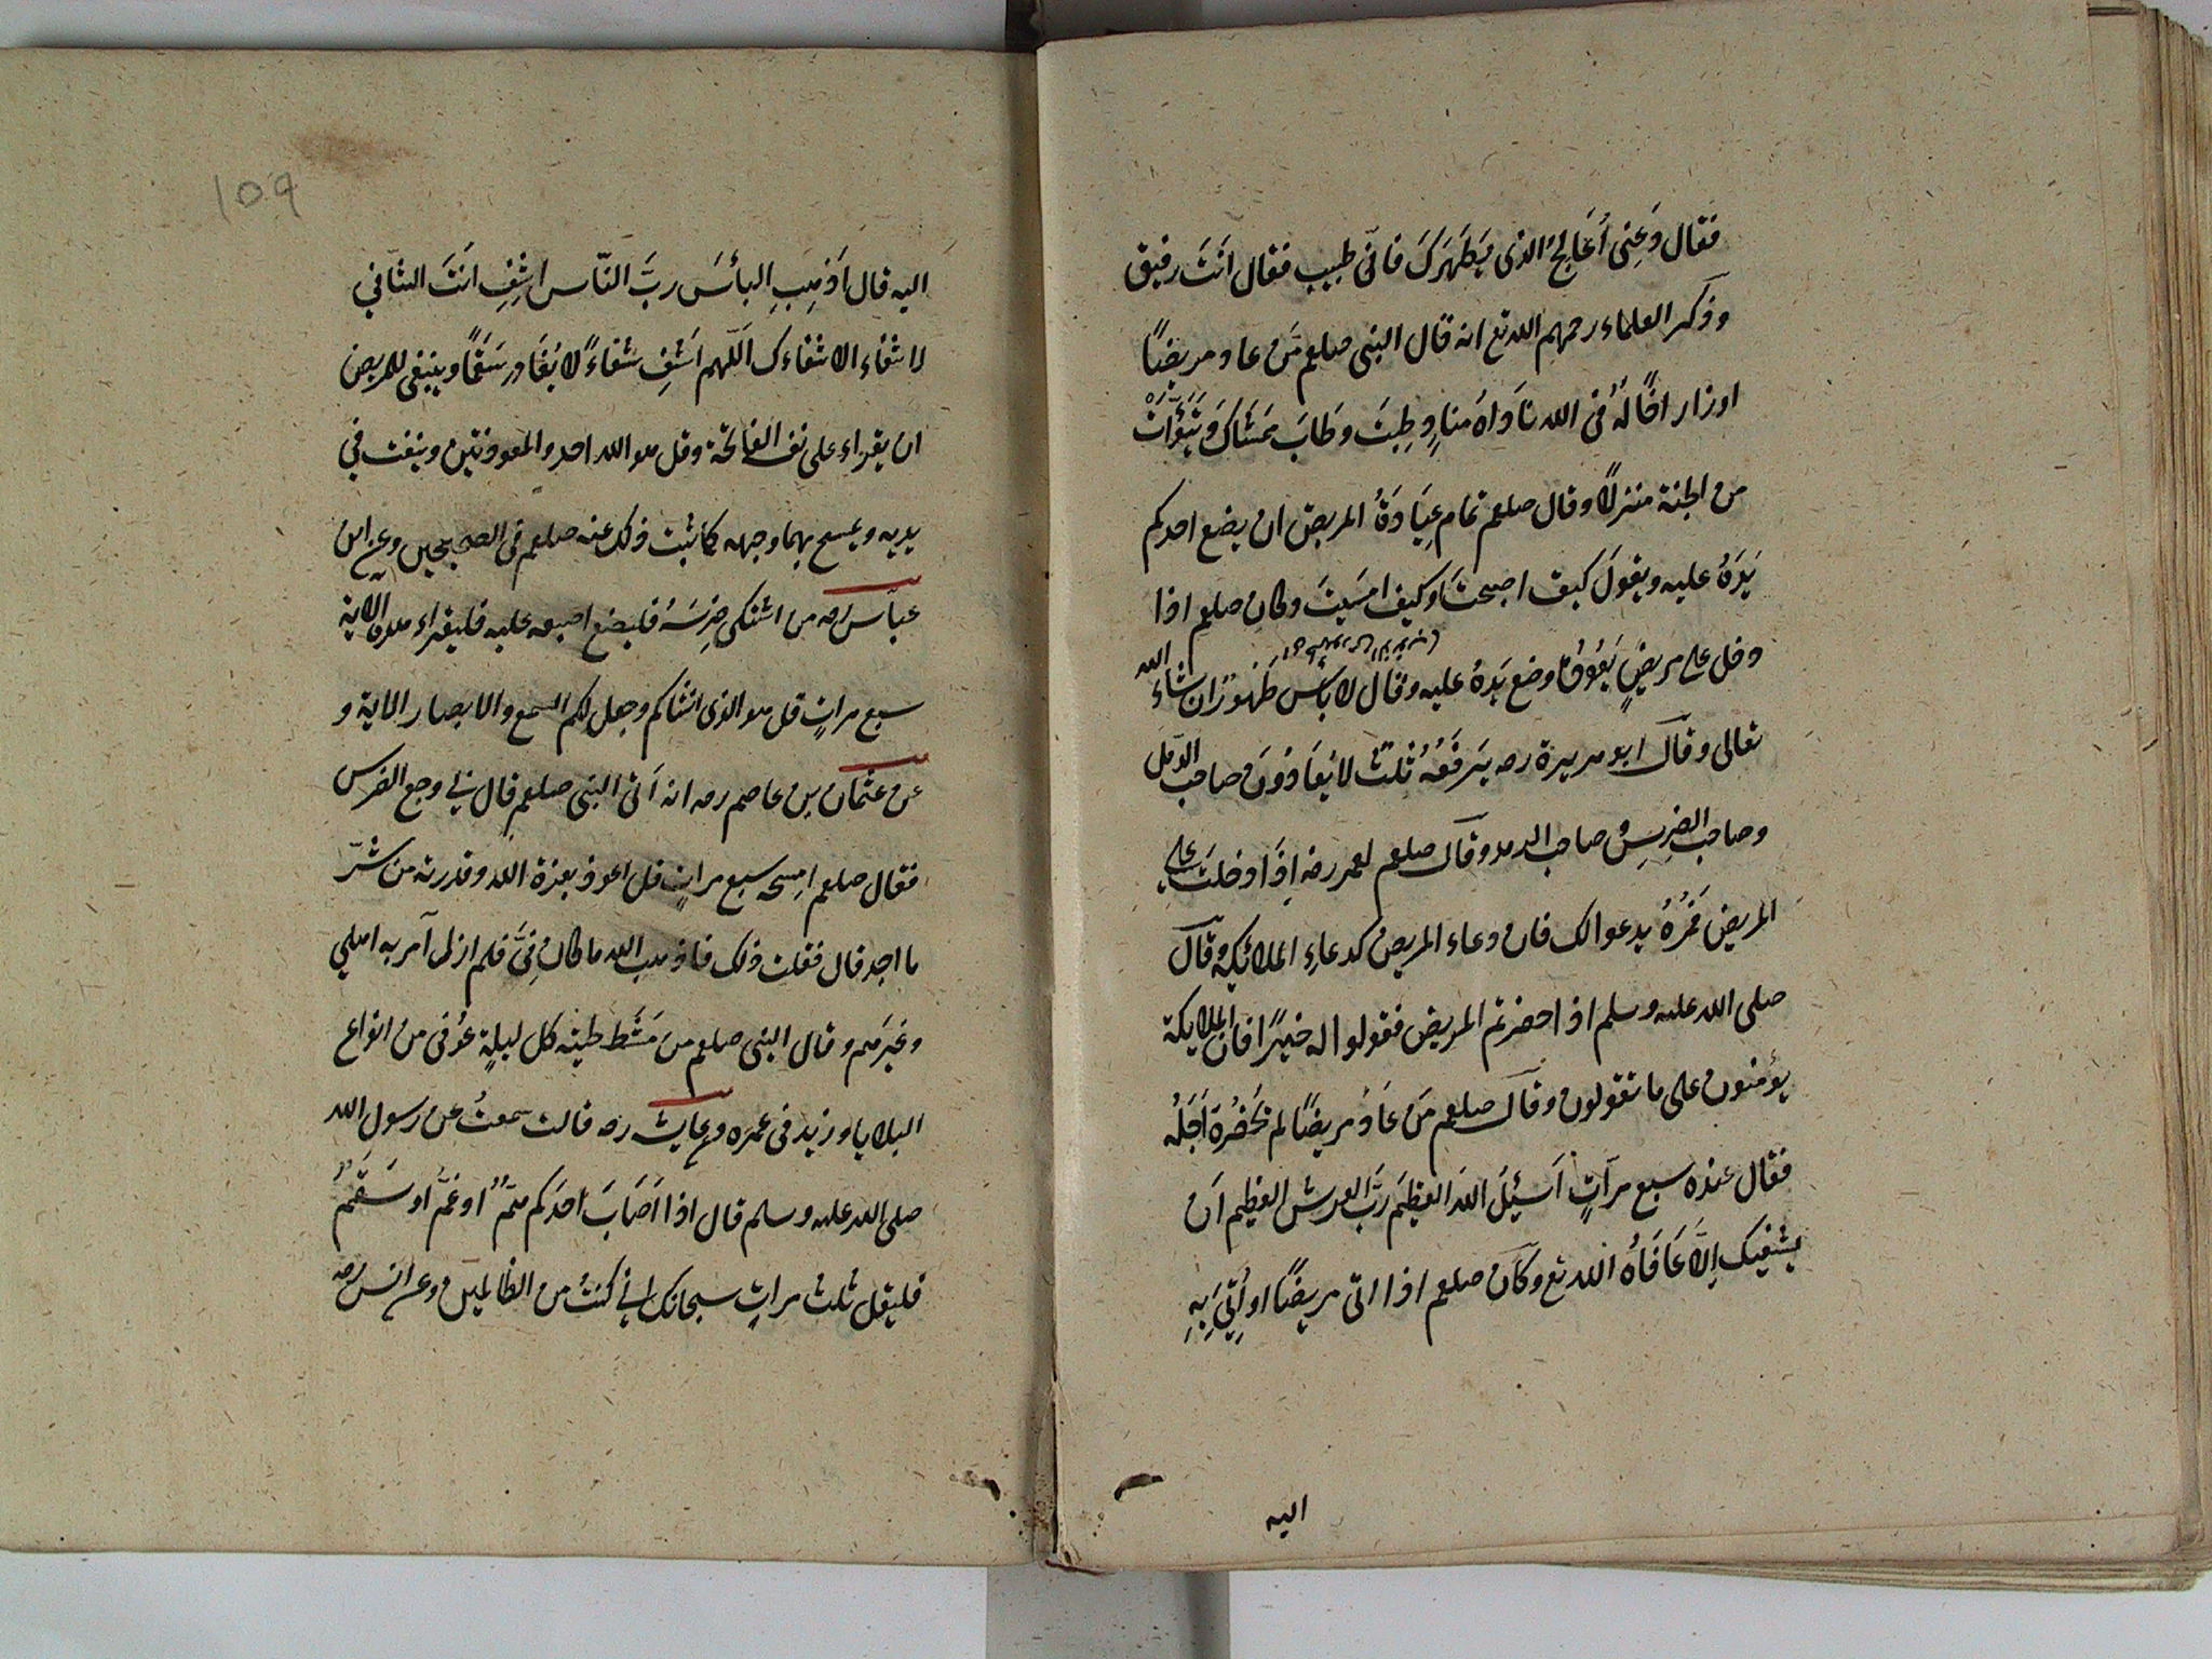 فقال دَعِنى أُعَالِجُ الذى بِظَهرَكَ فانّى طبيب فقال انَتَ رفيق
وذكر العلماء رحمهم الله تع انه قال النبى صلعم مَن عاد مريضًا
اوزار اخًا لَهُ فى الله نَادَاهُ منادٍ طِبتَ وطَابَ مَمشَاكَ وَتَبَوَّأتَ
من الجنة منزلًا وقال صلعم تمام عِيَادَةُ المريض ان يضع احدكم
يَدَهُ عليه ويقولَ كيف اصبحتَ وكيف امسَيتَ وكان صلعم اذا
دخل على مريضٍ يَعُودُهُ وضع يَدهُ عليه وقال لا باس طَهُورٌ ان شاءَ الله
تعالى وقال ابو هريرة رضه يَرفَعُهُ ثلث لا يُعَادُونَ صاحب الدمل
وصاحب الضِرسِ وصاحب الرمد وقال صلعم لعمر رضه اِذَا دخلتَ على
المريض فَمُرهُ يدعوا لك فان دعاء المريض كدعاءِ الملائكة وقال
صلى الله عليه وسلم اذا حضرتم المريض فقولوا له خيرًا فان الملايكة
يؤمنون على ما تقولون وقال صلعم مَن عَادَ مريضًا لم تَحضُرهُ اَجَلُهُ
فقال عنده سبع مرآتٍ اَسئِلُ اللهَ العظيَم رَبَّ العرش العظيم اَن
يشفيك اِلَّا عَافَاهُ الله تع وكان صلعم اذا اتى مريضًا او اُتِىَ بِهِ
اليه
109
اليه قال اَذهِبِ البأسَ ربَّ النّاس اشفِ انَتَ الشافى
لا شفاء الا شفاءك اَللّهم اَشفِ شفاءً لا يُغَادِر سَقَمًا وينبغى للمريض
ان يقراء على نفسه الفاتحة وقل هو الله احد والمعوذتين وينفث فى
يديه ويمسح بهما وجهه كما ثبت ذلك عنه صلعم فى الصحيحين وعن ابن
عبّاس رضه من اشتكى ضِرسَهُ فليضع اصبعه عليه فليقراء هذه الاية
سبع مراتٍ قل هو الذى انشاكم وجعل لكم السمع والابصار الاية و
عن عثمان بن عاصم رضه انه اَتى النبى صلعم قال بى وجع الضرس
فقال صلعم امِسحه سبع مراتٍ قل اعوذ بعزة الله وقدرته من شَرّ
ما اجد قال فقلت ذلك فاذهب الله ما كان فِىَّ فلم ازل آمر به اهلى
وغيَرهم وقال النبى صلعم من مَشَط لحيته كل ليلةٍ عُوفى من انواع
البلايا وزيد فى عمره وعن عايشه رضه قالت سمعتُ عن رسول الله
صلى الله عليه وسلم قال اذا اَصَابَ اَحدَكم هَمٌّ او غَمٌّ او سَقَمٌ
فليقل ثلث مراتٍ سبحانك انى كنتُ من الظالمين وعن انس رضه